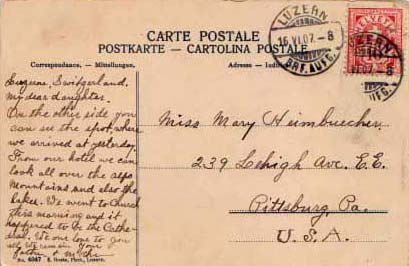 CARTE POSTALE
POSTKARTE - CARTOLINA POSTALE
Correspondance. - Mitteilungen.
Adresse -
LUZERN
16.VI.07. - 8
BRF.AUFG.
HELVETIA
Luzerne, Switzerland.
My dear daughter.
On the other side you
can see the spot, where
we arrived at yesterday.
From our hotel we can
look all over the alps
Mountains and also the
lakes. We went to Church
this morning and it
happened to be the Cathe-
dral. We
we remain your
father & mother
Miss Mary Heimbuecher,
239 Lehigh Ave. E.E.
Pittsburg, Pa.
U.S.A.
No. 6047 E. Goetz, Phot., Luzern.